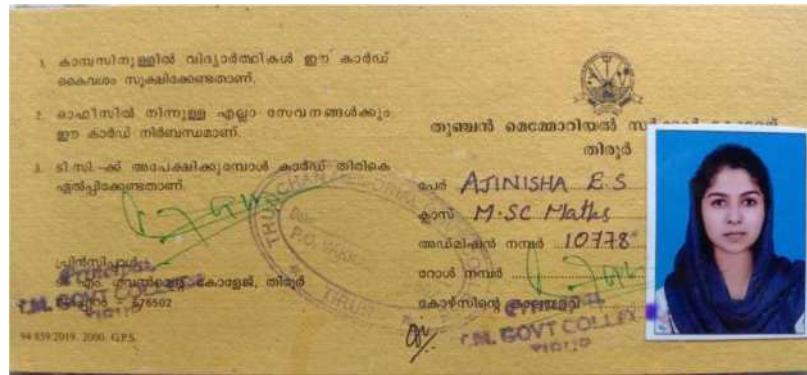 1. കാമ്പസിനുള്ളിൽ വിദ്യാർത്ഥികൾ ഈ കാർഡ്
കൈവശം സൂക്ഷിക്കേണ്ടതാണ്.
2. ഓഫീസിൽ നിന്നുള്ള എല്ലാ സേവനങ്ങൾക്കും
ഈ കാർഡ് നിർബന്ധമാണ്.
3. ടി.സി.-ക്ക് അപേക്ഷിക്കുമ്പോൾ കാർഡ് തിരികെ
ഏൽപ്പിക്കേണ്ടതാണ്.
പ്രിൻസിപ്പാൾ
കോളേജ്, തിരൂർ
676502
94/859/2019. 2000. G.P.S.
തുഞ്ചൻ മെമ്മോറിയൽ
തിരൂർ
പേര് AJINISHA E.S
ക്ലാസ് M.SC Maths
അഡ്മിഷൻ നമ്പർ 10778
റോൾ നമ്പർ
കോഴ്സിന്റെ
T.M. GOVT COLLEGE